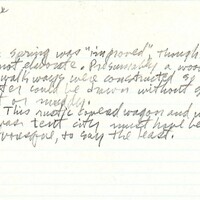 spring was "improved" though
not elaborate. Presumably a wood
walk ways were constructed so
could be drawn without g
or muddy.
This rustic covered wagon and
tent city must have be
, to say the least.